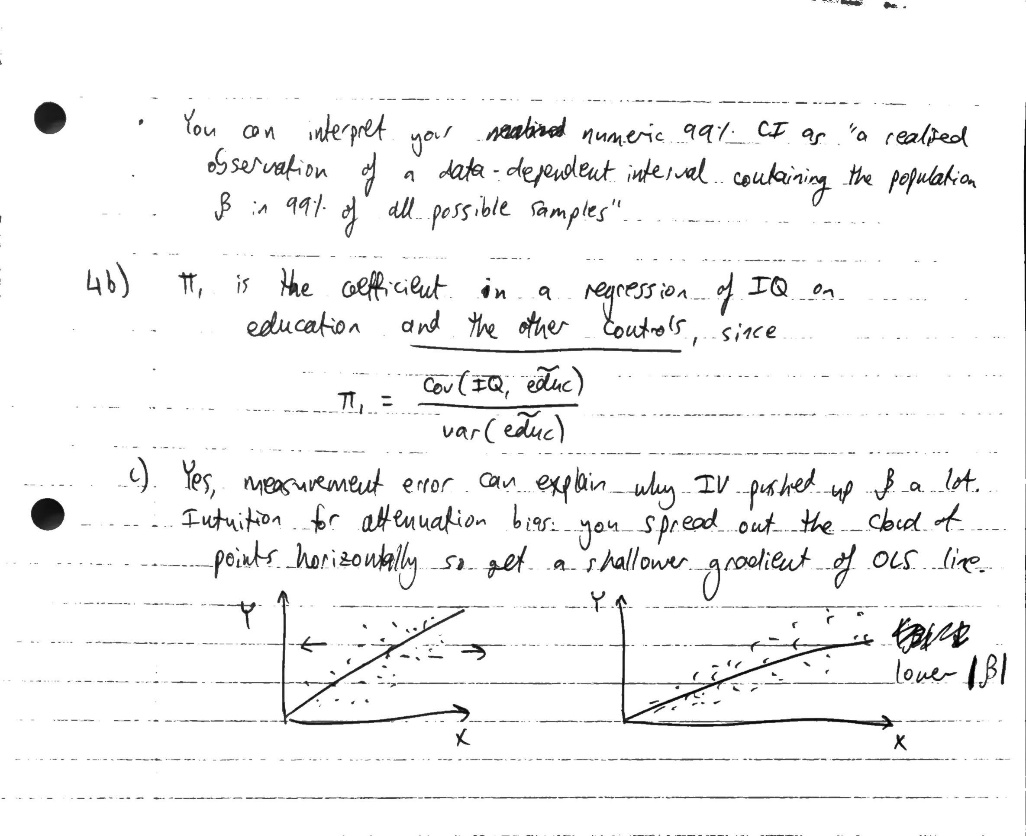 · You can interpret your numeric 99% CI as "a realised
observation of a data-dependent interval containing the population
β in 99% of all possible samples"
4b) π₁ is the coefficient in a regression of IQ on
education and the other controls, since
π₁ = cov(IQ, ẽduc) / var(ẽduc)
c) Yes, measurement error can explain why IV pushed up β a lot.
Intuition for attenuation bias: you spread out the cloud of
points horizontally so get a shallower gradient of OLS line.
Y
X
Y
lower |β|
X